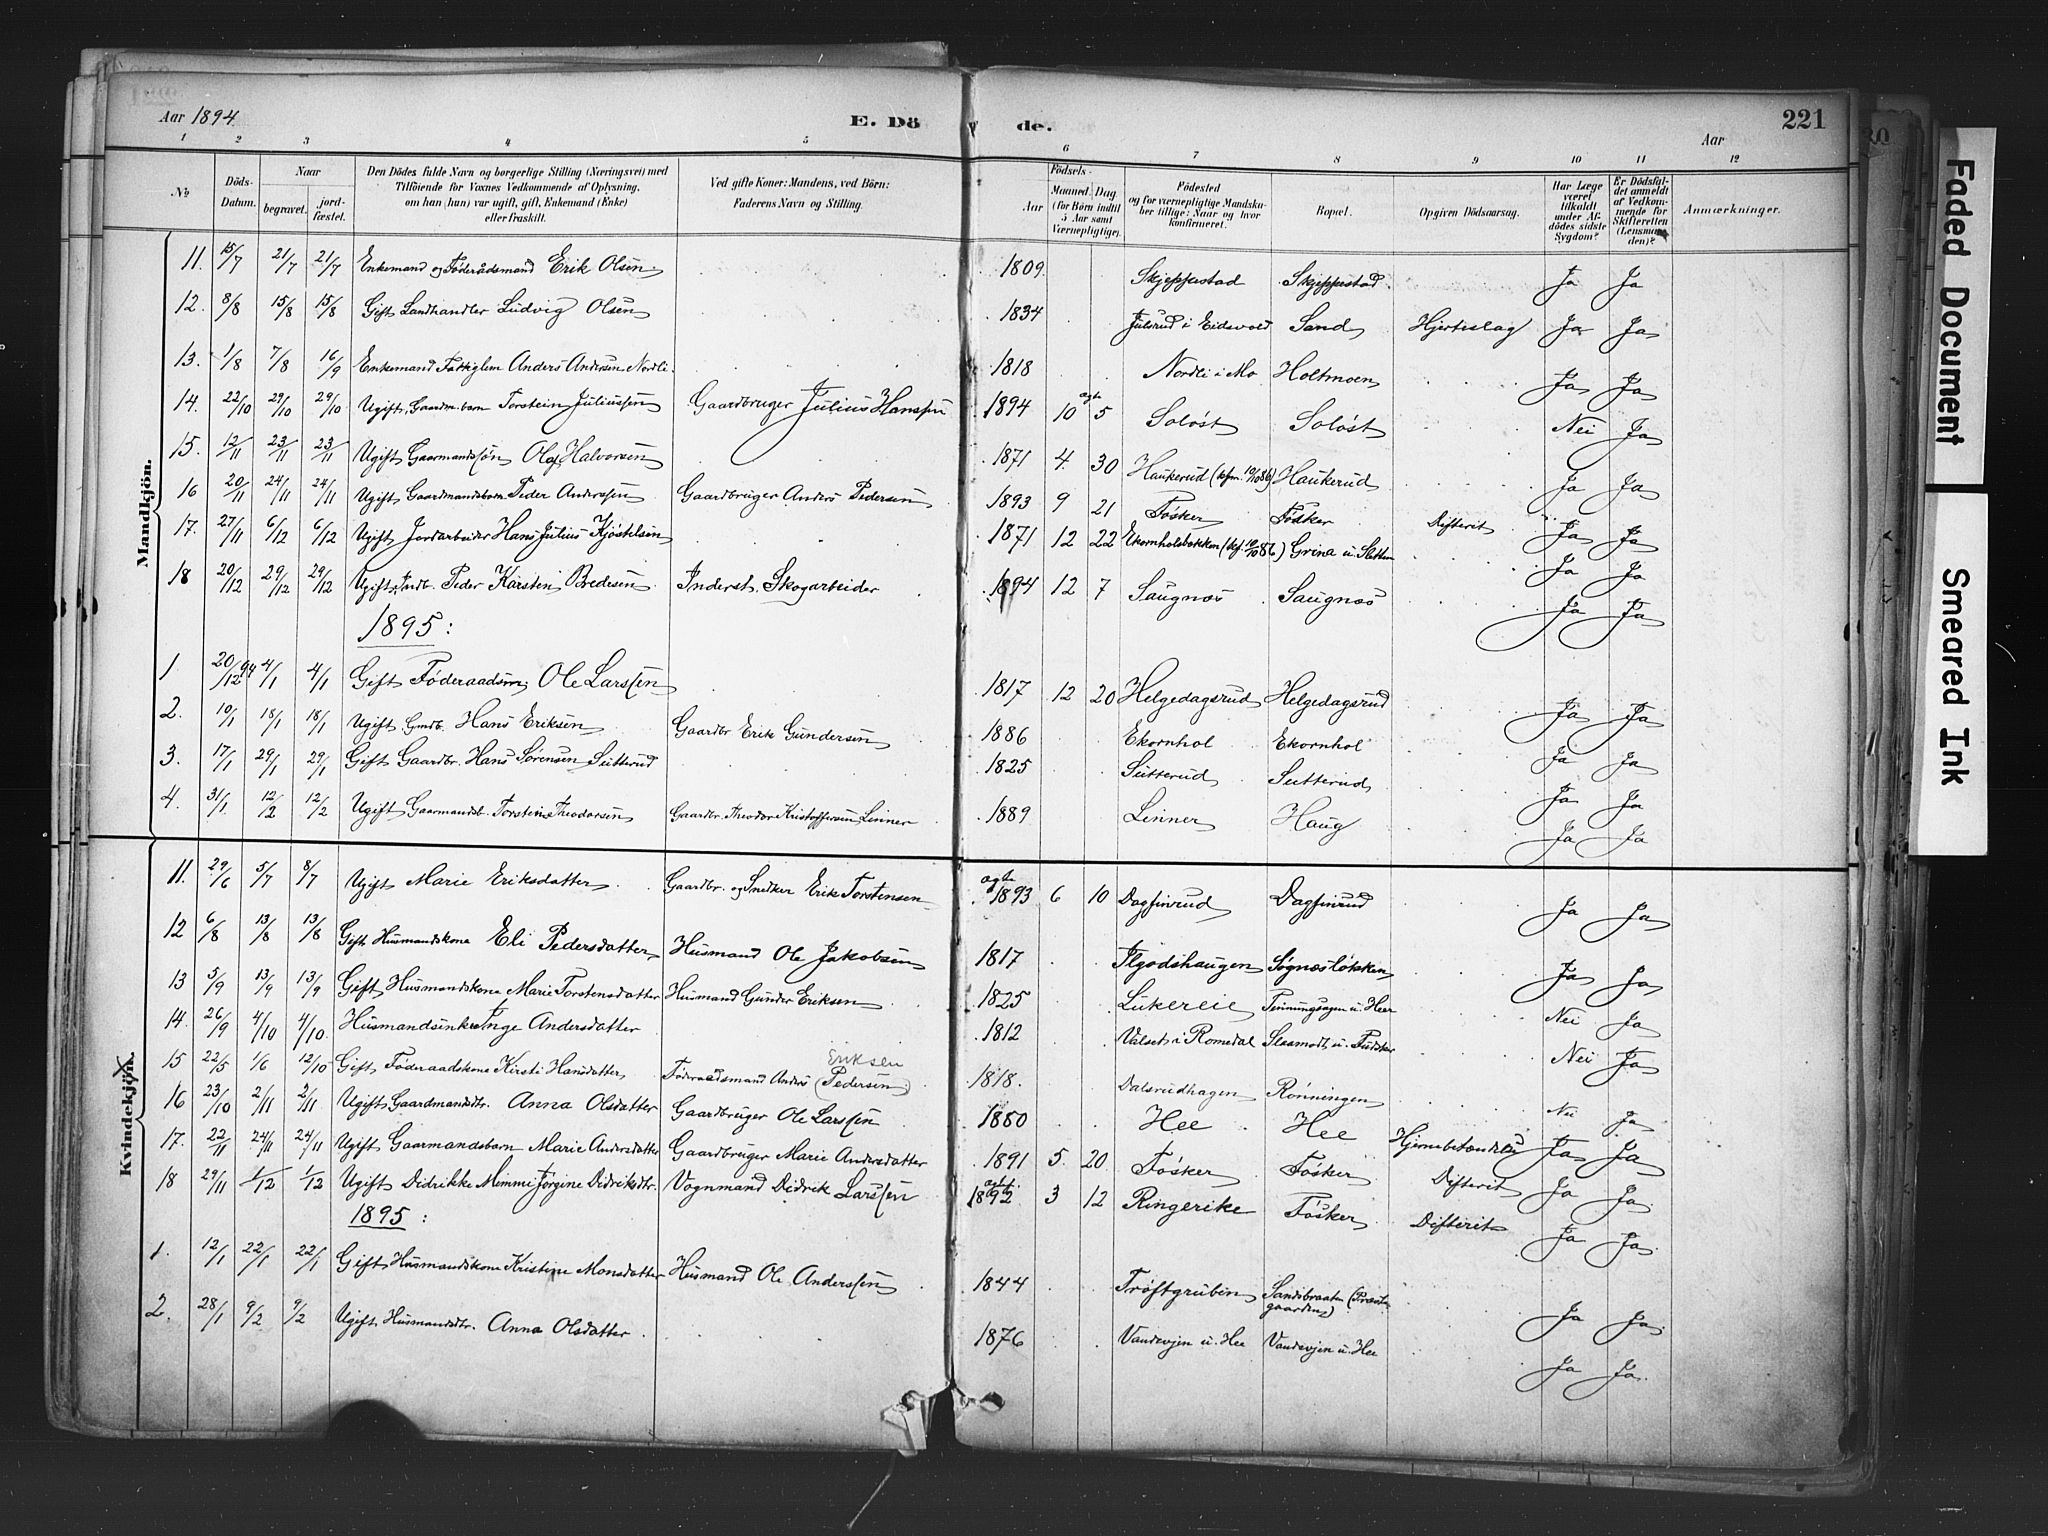 Aar 1894.
E. Dö de.
Aar
221
1 2 3 4 5 6 7 8 9 10 11 12
No
Döds-Datum.
Naar
begravet.
jord-fæstet.
Den Dödes fulde Navn og borgerlige Stilling (Næringsvei) med
Tilföiende for Voxnes Vedkommende af Oplysning,
om han (hun) var ugift, gift, Enkemand (Enke)
eller fraskilt.
Ved gifte Koner: Mandens, ved Börn:
Faderens Navn og Stilling.
Födsels-
Aar
Maaned. Dag.
(for Börn indtil
5 Aar samt
Værnepligtige).
Födested
og for værnepligtige Mandska-
ber tillige: Naar og hvor
konfirmeret.
Bopæl.
Opgiven Dödsaarsag.
Har Læge
været
tilkaldt
under Af-
dödes sidste
Sygdom?
Er Dödsfal-
det anmeldt
af Vedkom-
mende for
Skifteretten
(Lensman-
den)?
Anmærkninger.
Mandkjön.
11. 15/7 21/7 21/7 Enkemand og Föderådsmand Erik Olsen 1809 Skjeppestad Skjeppestad Ja Ja
12. 8/8 15/8 15/8 Gift Landhandler Ludvig Olsen 1834 Julsrud i Eidsvold Sand Hjerteslag Ja Ja
13. 1/8 7/8 16/9 Enkemand Fattiglem Anders Andersen Nordli 1818 Nordli i Mo Holtmoen Ja Ja
14. 22/10 29/10 29/10 Ugift Gaardm.barn Torstein Juliussen Gaardbruger Julius Hanssen 1894 10 agt. 5 Soløst Soløst Nei Ja
15. 12/11 23/11 23/11 Ugift Gaarmandssön Olaf Halvorsen 1871 4 30 Haukerud (kfm. 10/10 86) Haukerud Ja Ja
16 20/11 24/11 24/11 Ugift Gaardmandsbarn Peder Anderssen Gaardbruger Anders Pedersen 1893 9 21 Fösker Fösker Difterit Ja Ja
17. 27/11 6/12 6/12 Ugift Jordarbeider Hans Julius Kjöstelsen 1871 12 22 Ekornholsbakken (kf. 10/10 86) Grina u. Slettum Ja Ja
18 20/12 29/12 29/12 Ugift Indb. Peder Karsten Bredesen Inderst, Skogarbeider 1894 12 7 Saugnæs Saugnæs Ja Ja
1895:
1. 20/12 94 4/1 4/1 Gift Föderaadsm. Ole Larssen 1817 12 20 Helgedagsrud Helgedagsrud Ja Ja
2. 10/1 18/1 18/1 Ugift Gmdb. Hans Eriksen Gaardbr Erik Gundersen 1886 Ekornhol Ekornhol Ja Ja
3. 17/1 29/1 29/1 Gift Gaardbr. Hans Sörensen Sutterud 1825 Sutterud Sutterud Ja Ja
4. 31/1 12/2 12/2 Ugift Gaarmandsb. Torstein Theodorsen Gaardbr. Theodor Kristoffersen Linner 1889 Linner Haug Ja Ja
Kvindekjön.
11. 29/6 5/7 8/7 Ugift Marie Eriksdatter Gaardbr. og Snedker Erik Torstensen agt. 1893 6 10 Dagfinrud Dagfinrud Ja Ja
12 6/8 13/8 13/8 Gift Husmandskone Eli Pedersdatter Husmand Ole Jakobsen 1817 Flgodshaugen Sögnesløkken Ja Ja
13 5/9 13/9 13/9 Gift Husmandskone Marie Torstensdatter Husmand Gunder Eriksen 1825 Lukereie u. Heer Nei Ja
14. 26/9 4/10 4/10. Husmandsinke Inge Andersdatter 1812 Valset i Romedal u. Fudsker Nei Ja
15 22/5 1/6 12/10 Gift Föderaadskone Kirsti Hansdatter Föderaadsmand Anders (Pedersen) Eriksen 1818. Dalsrudhagen Rönningen Nei Ja
16 23/10 2/11 2/11 Ugift Gaardmandsdtr. Anna Olsdatter Gaardbruger Ole Larssen 1880 Hee Hee Hjernebetændelse Ja Ja
17. 22/11 24/11 24/11 Ugift Gaarmandsbarn Marie Andersdatter Gaardbruger Marie Andersdatter 1891 5 20 Fösker Fösker Difterit Ja Ja
18 29/11 1/12 1/12 Ugift Didrikke Mimmi Jörgine Didriksdtr. Vognmand Didrik Larssen agt. 1892 3 12 Ringerike Fösker Difterit Ja Ja
1895:
1. 12/1 22/1 22/1 Gift Husmandskone Kristine Monsdatter Husmand Ole Anderssen 1844 Tröftgruben Sandbraaten (Præstegaarden) Ja Ja
2. 28/1 9/2 9/2 Ugift Husmandsdtr. Anna Olsdatter 1876 Vandsvjen u. Hee Vandsvjen u. Hee Ja Ja
Faded Document
Smeared Ink